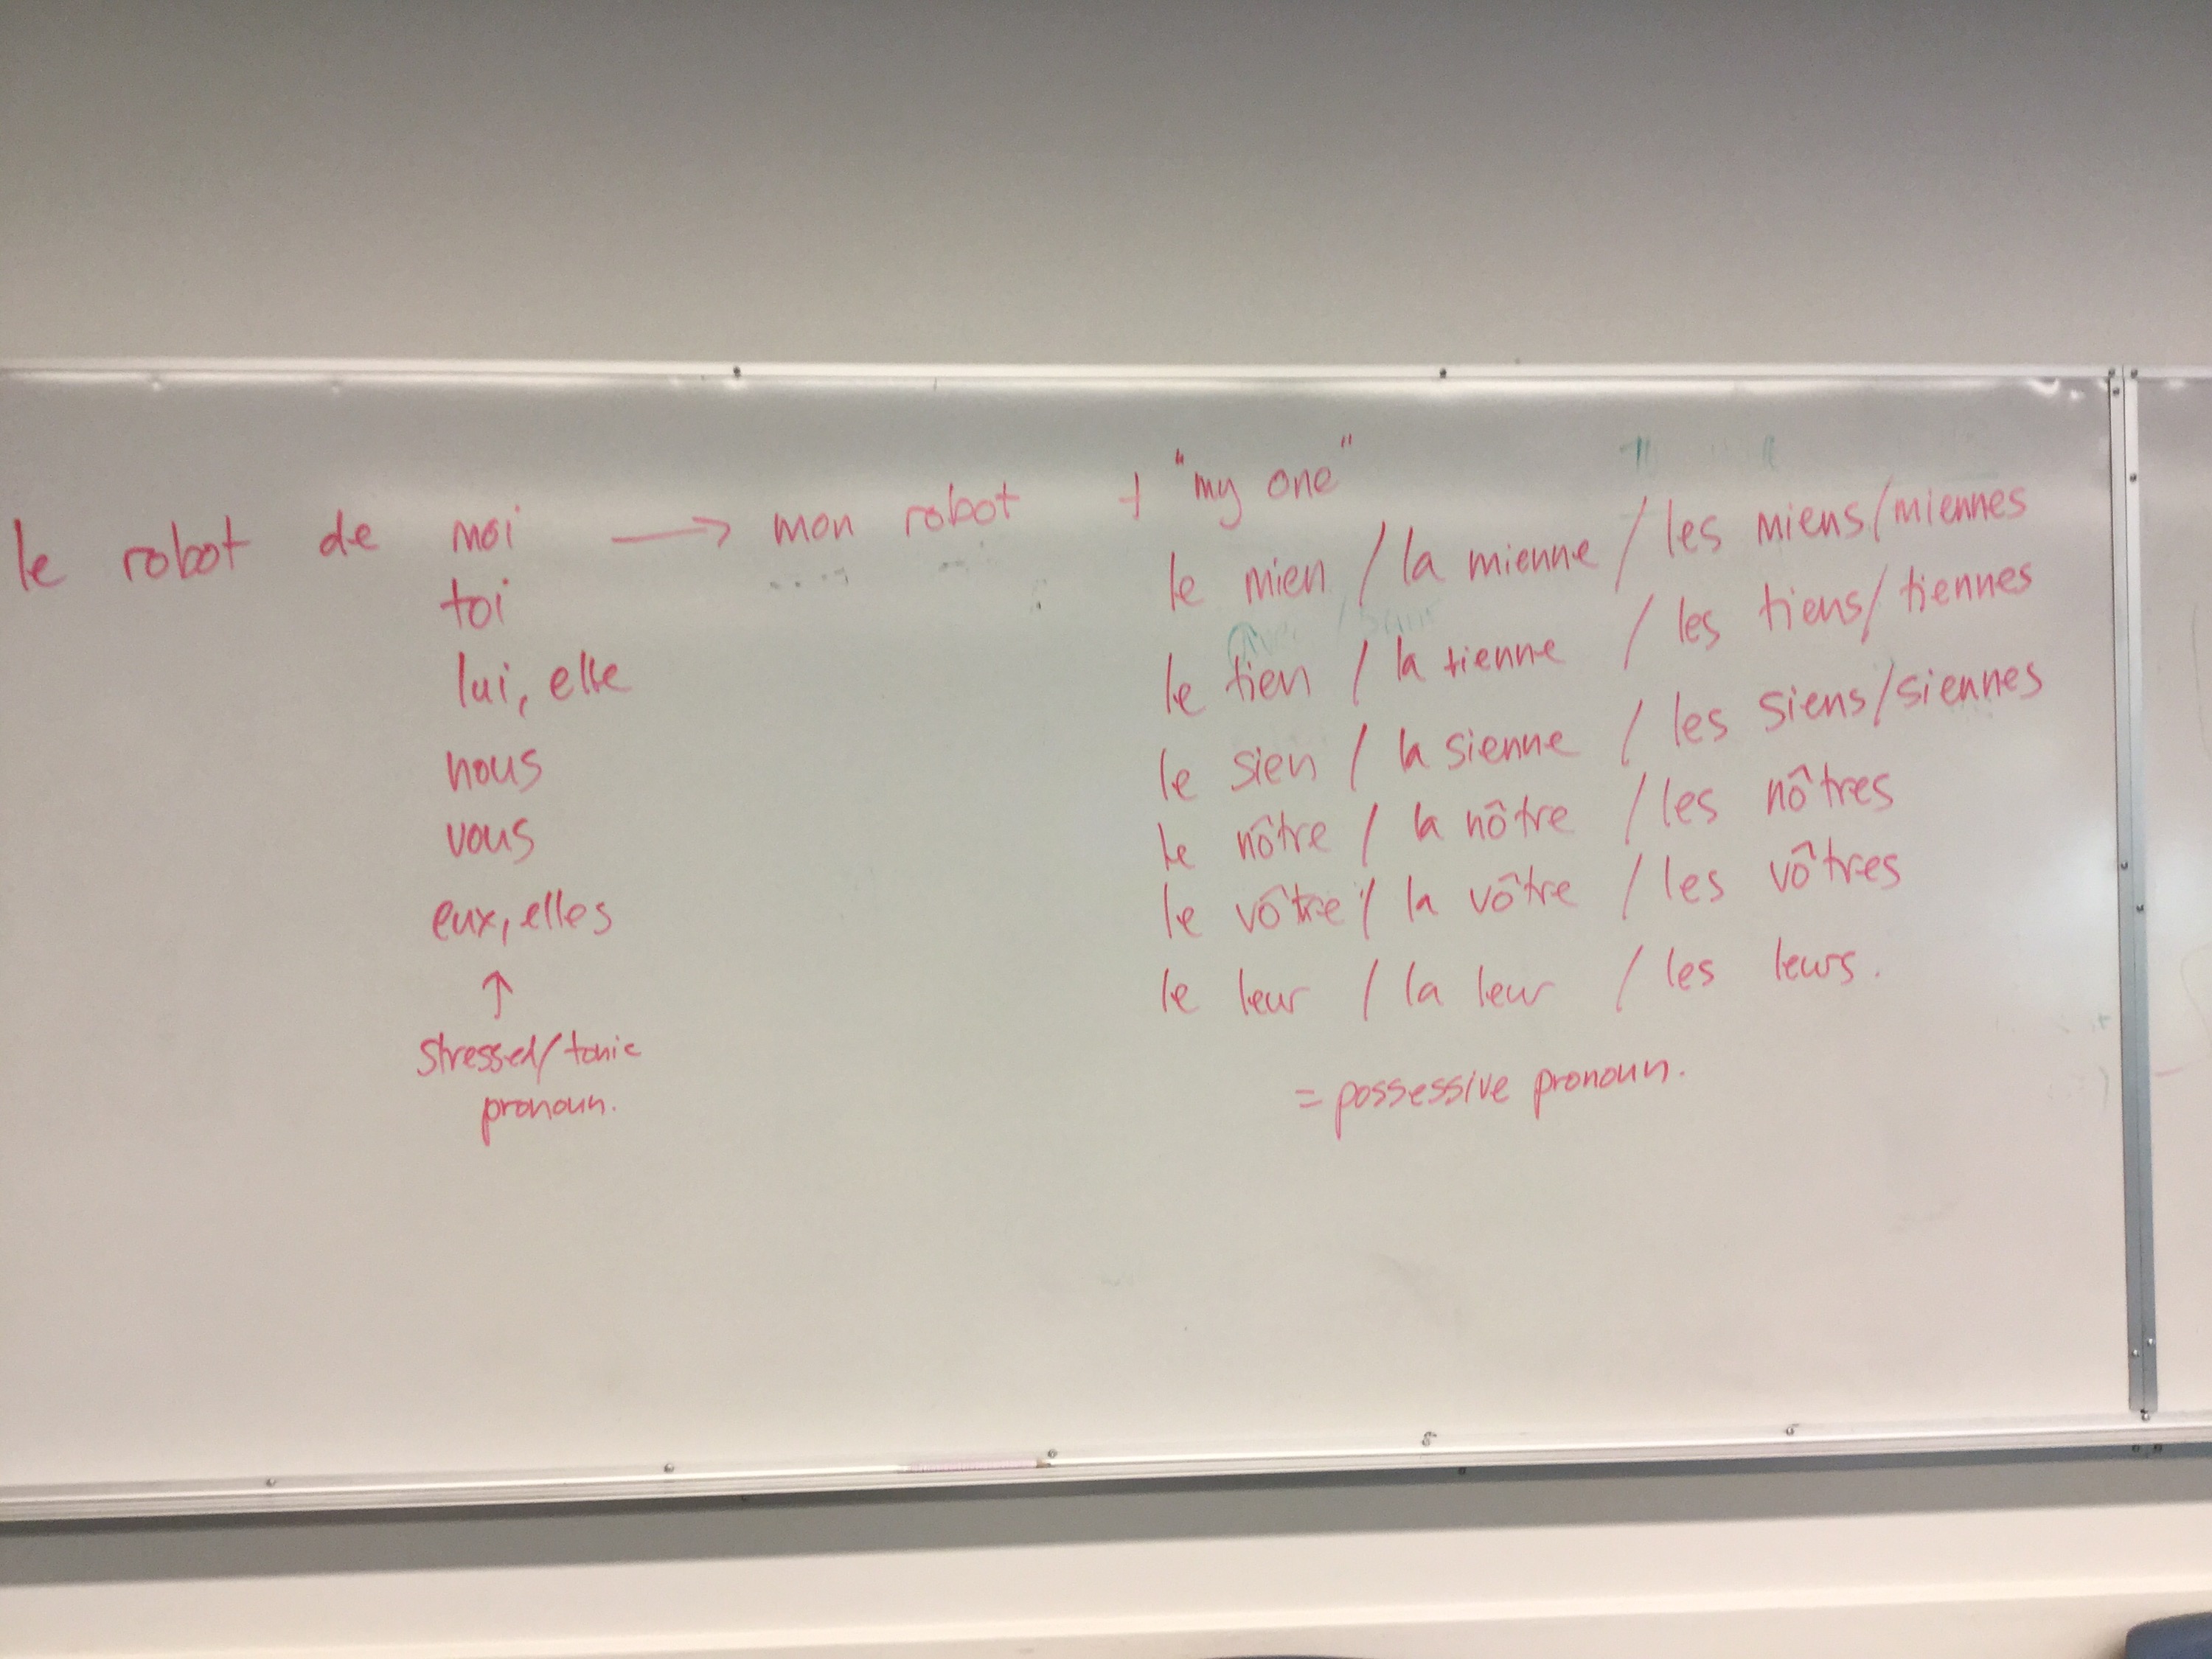 le robot de moi → mon robot + "my one"
le mien / la mienne / les miens/miennes
toi
le tien / la tienne / les tiens/tiennes
lui, elle
le sien / la sienne / les siens/siennes
nous
le nôtre / la nôtre / les nôtres
vous
le vôtre / la vôtre / les vôtres
eux, elles
le leur / la leur / les leurs.
↑
stressed/tonic
pronoun.
= possessive pronoun.